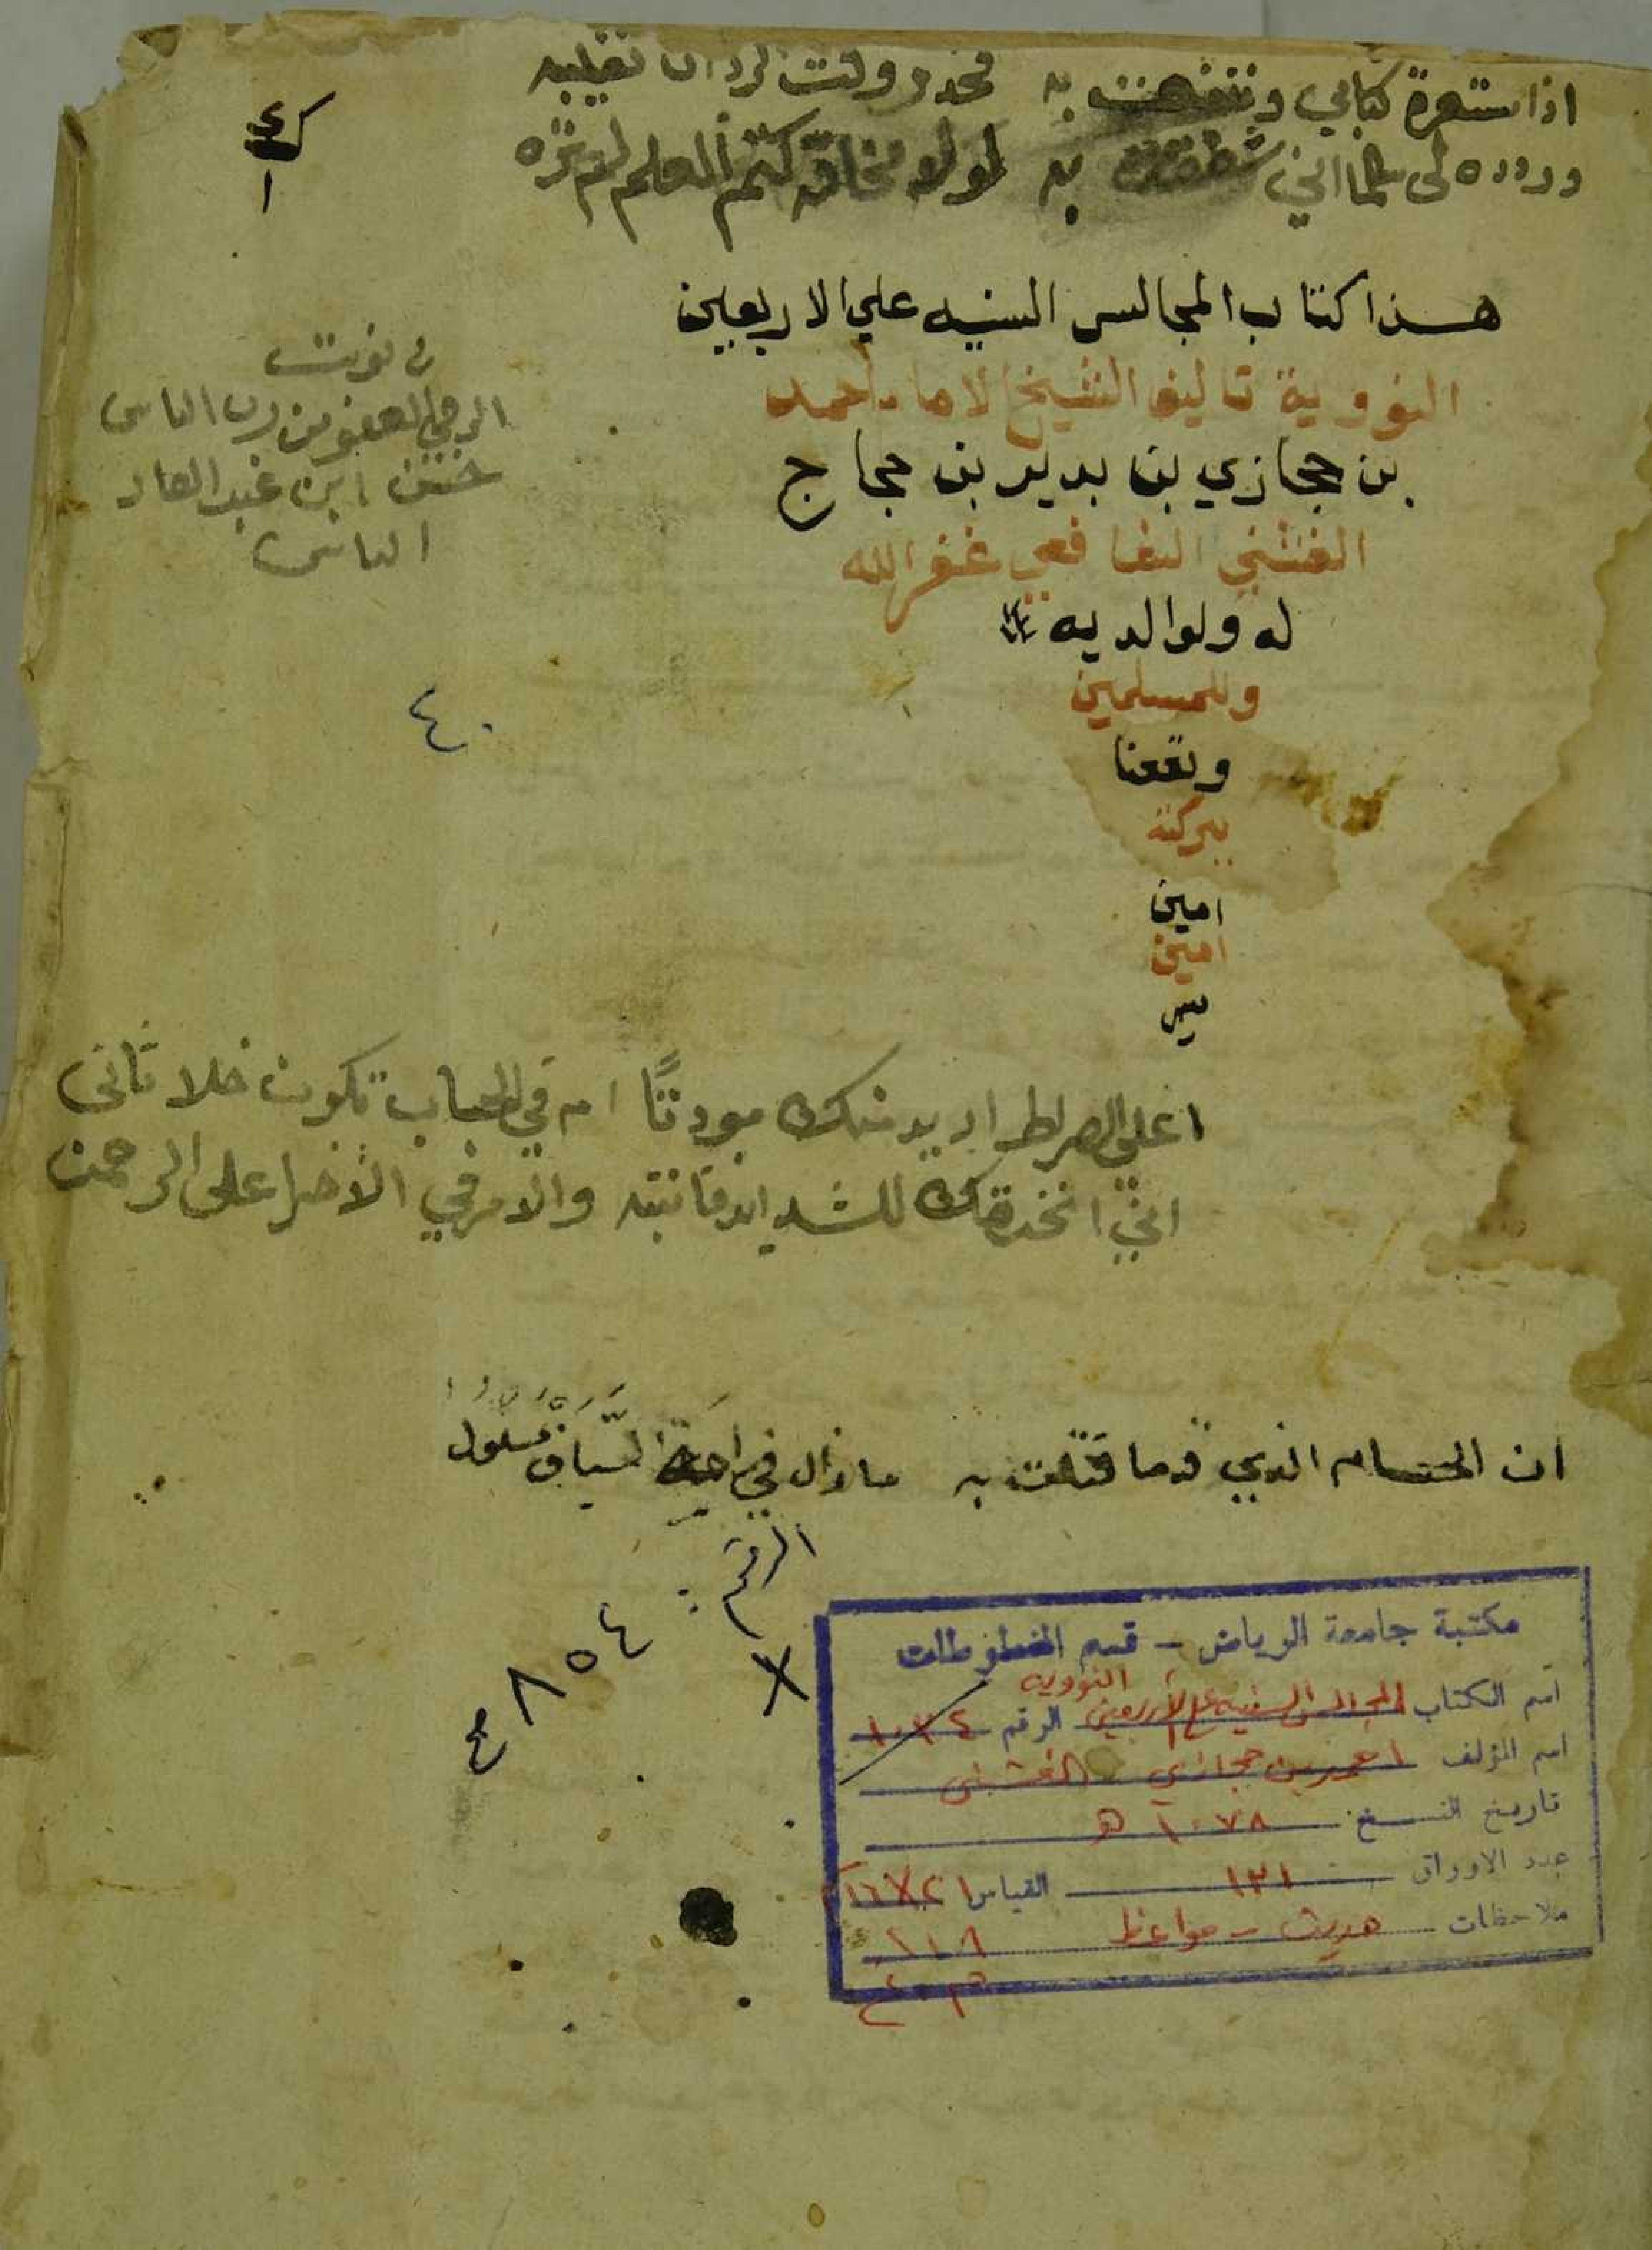 اذا ستعرة كتابي ونتفعت به فخدر وقت لرد ان تغليبه
وردده لى كما اني شغفت به لولا مخافة كتم العلم لم تره
ك٤
١
هذا كتاب المجالس السنيه علي الاربعين
النووية تاليف الشيخ الامام احمد
بن حجازي بن بدير بن حجاج
الفشني الشافعي غفر الله
له ولوالديه
وللمسلمين
ونفعنا
ببركته
امين
امين
نوبت
الرجي العفو من رب الناس
حسن ابن عبد
الناس
٤٠
اعلي الصراط اريد منك مودتًا ام في الحساب تكون خلا تانى
اني اتخذتك للشدايد فانتبه والامر في الاخرا على الرحمن
ان الحسام الذي قدما قتلت به ما زال في السياف مسلول
الرقم:
٤٨٥٤
مكتبة جامعة الرياض - قسم المخطوطات
اسم الكتاب المجالس السنيه على الأربعين النوويه الرقم ١٠٣٤
اسم المؤلف احمد بن حجازي الفشني
تاريخ النسخ ١٠٧٨ هـ
عدد الاوراق ١٢١ القياس ٢١×١٦
ملاحظات حديث - مواعظ
٢١٨
م.ع